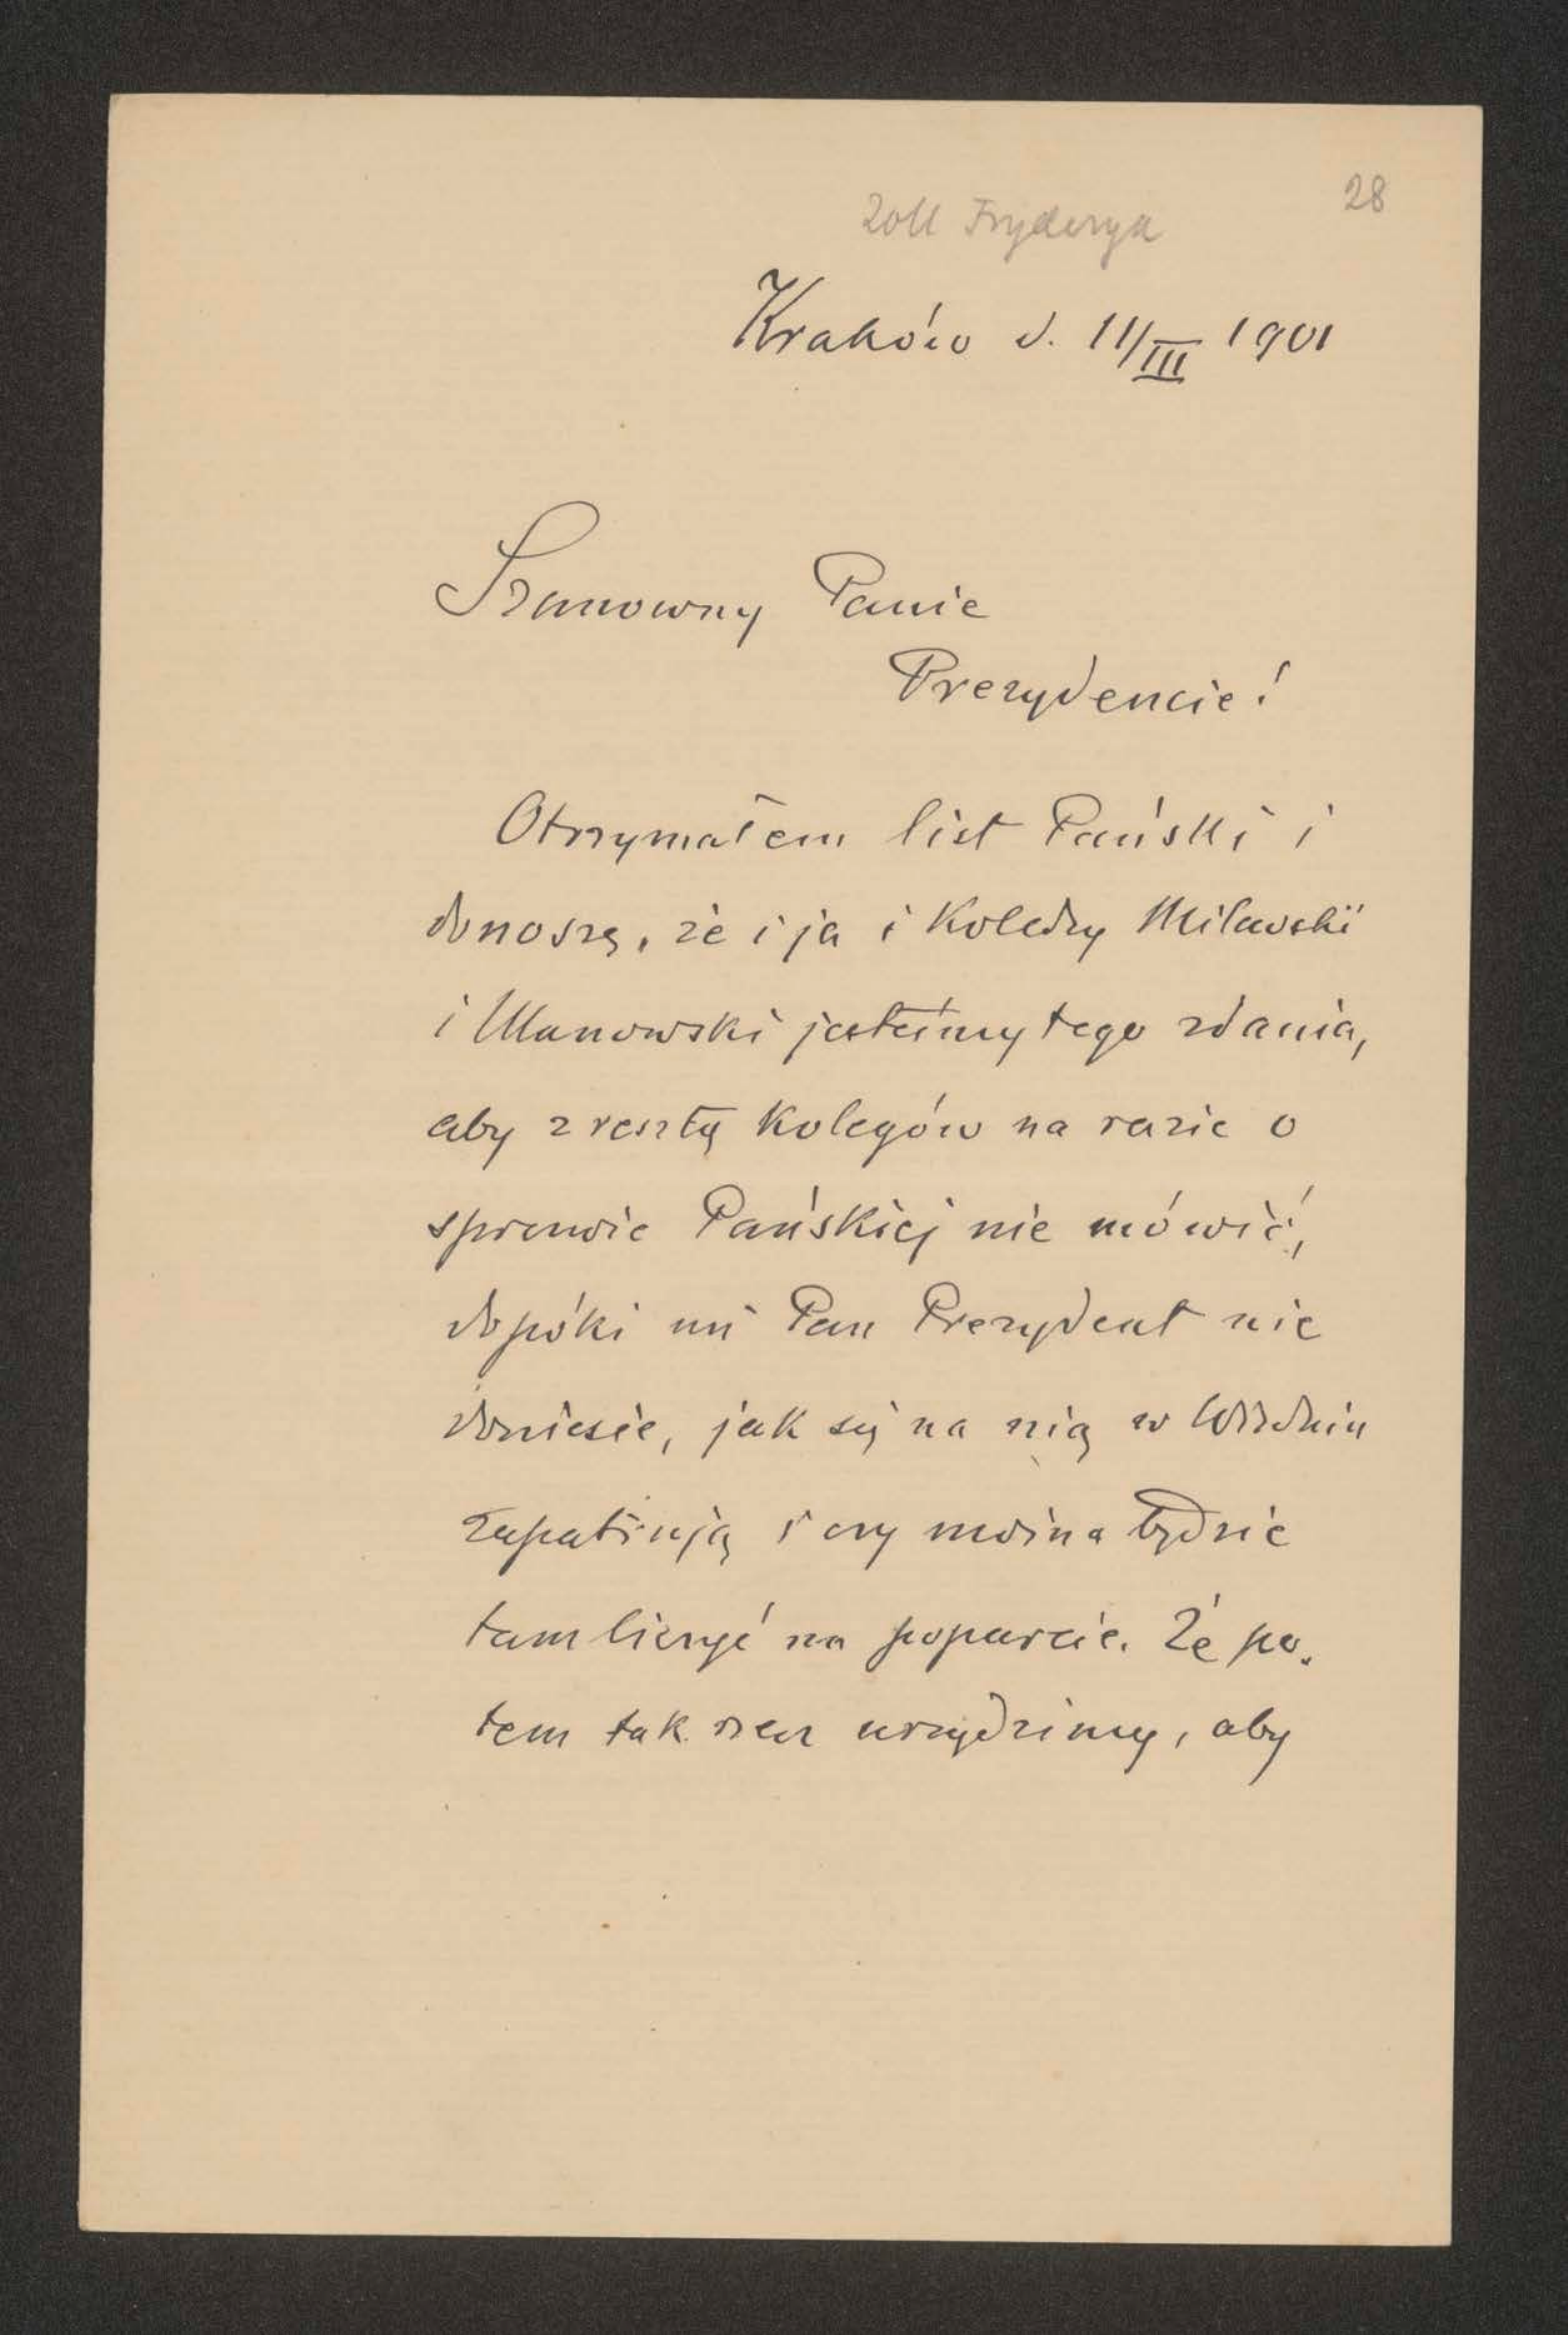 28
Zoll Fryderyk
Kraków d. 11/III 1901
Szanowny Panie
Prezydencie!
Otrzymałem list Pański i
donoszę, że i ja i Koledzy Milewski
i Ulanowski jesteśmy tego zdania,
aby z resztą Kolegów na razie o
sprawie Pańskiej nie mówić,
dopóki mi Pan Prezydent nie
doniesie, jak się na nią w Wiedniu
zapatrują i czy można będzie
tam liczyć na poparcie. Że po-
tem tak rzecz urządzimy, aby